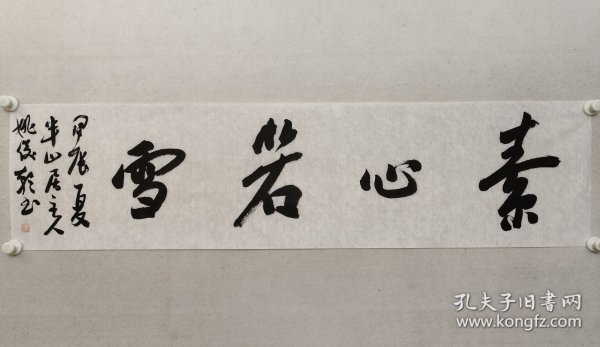 素心若雪
甲辰夏
半山居主人
姚俊乾书
孔夫子旧书网
www.kongfz.com